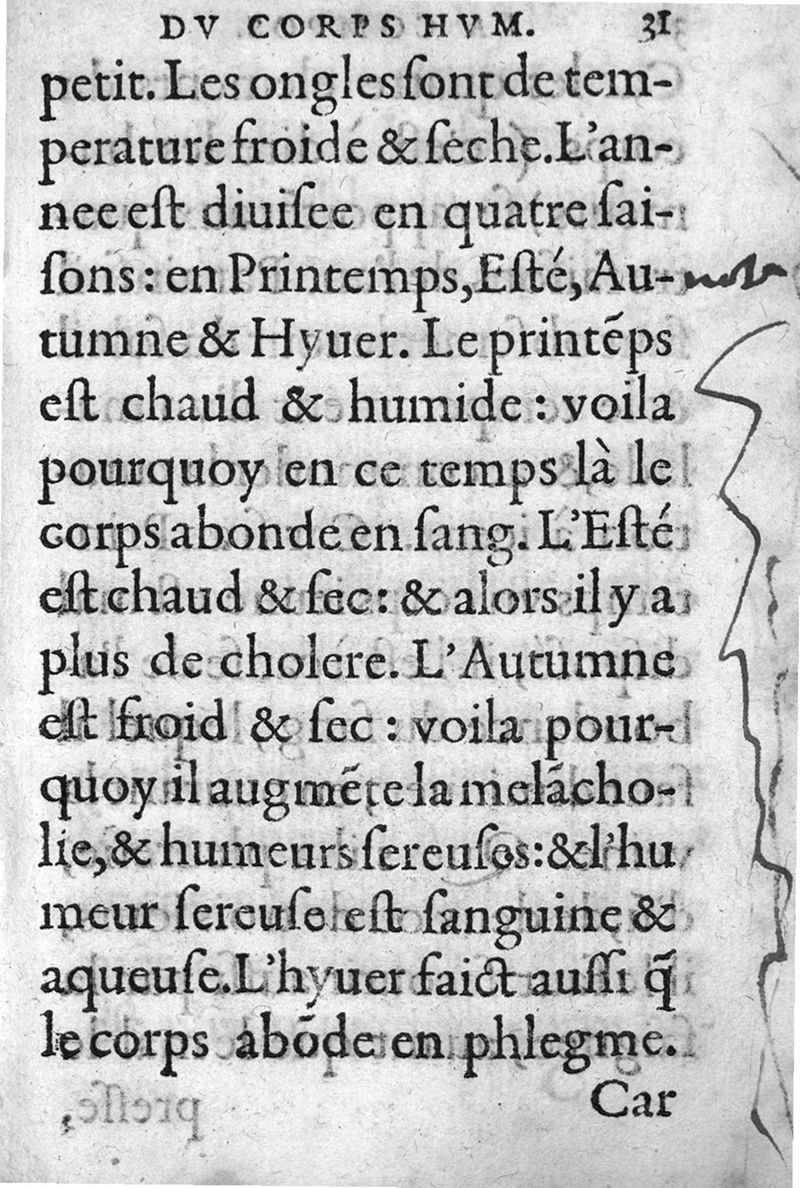 DV CORPS HVM. 31
petit. Les ongles ſont de tem-
perature froide & ſeche. L'an-
nee eſt diuiſee en quatre ſai-
ſons: en Printemps, Eſté, Au-
nota
tumne & Hyuer. Le printẽps
eſt chaud & humide: voila
pourquoy en ce temps là le
corps abonde en ſang. L'Eſté
eſt chaud & ſec: & alors il y a
plus de cholere. L'Autumne
eſt froid & ſec: voila pour-
quoy il augmẽte la melãcho-
lie, & humeurs ſereuſes: & l'hu
meur ſereuſe eſt ſanguine &
aqueuſe. L'hyuer faict auſſi q̃
le corps abõde en phlegme.
Car